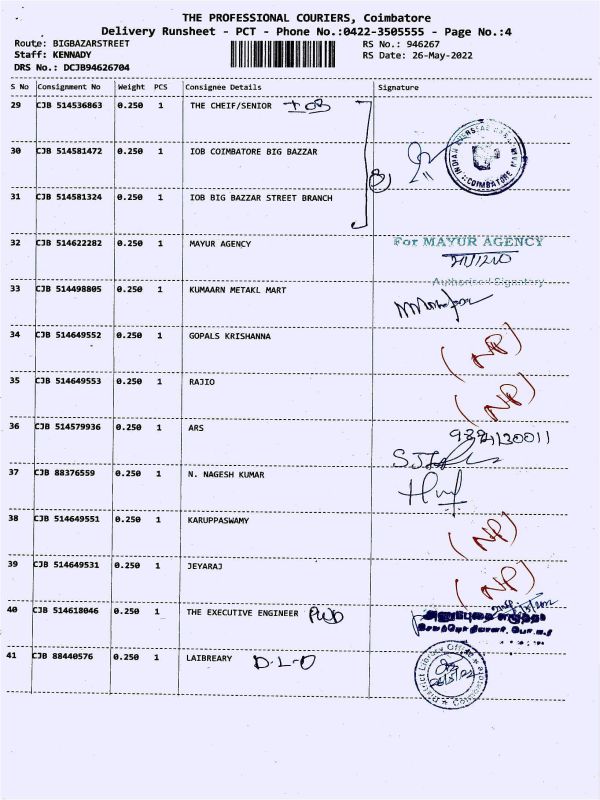 THE PROFESSIONAL COURIERS, Coimbatore
Delivery Runsheet - PCT - Phone No.:0422-3505555 - Page No.:4
Route: BIGBAZARSTREET RS No.: 946267
Staff: KENNADY RS Date: 26-May-2022
DRS No.: DCJB94626704
S No Consignment No Weight PCS Consignee Details Signature
29 CJB 514536863 0.250 1 THE CHEIF/SENIOR IOB
30 CJB 514581472 0.250 1 IOB COIMBATORE BIG BAZZAR
31 CJB 514581324 0.250 1 IOB BIG BAZZAR STREET BRANCH
32 CJB 514622282 0.250 1 MAYUR AGENCY For MAYUR AGENCY
Authorised Signatory
33 CJB 514498805 0.250 1 KUMAARN METAKL MART
34 CJB 514649552 0.250 1 GOPALS KRISHANNA (NP)
35 CJB 514649553 0.250 1 RAJIO (NP)
36 CJB 514579936 0.250 1 ARS
37 CJB 88376559 0.250 1 N. NAGESH KUMAR
38 CJB 514649551 0.250 1 KARUPPASWAMY (NP)
39 CJB 514649531 0.250 1 JEYARAJ (NP)
40 CJB 514618046 0.250 1 THE EXECUTIVE ENGINEER PWD
41 CJB 88440576 0.250 1 LAIBREARY D.L.O